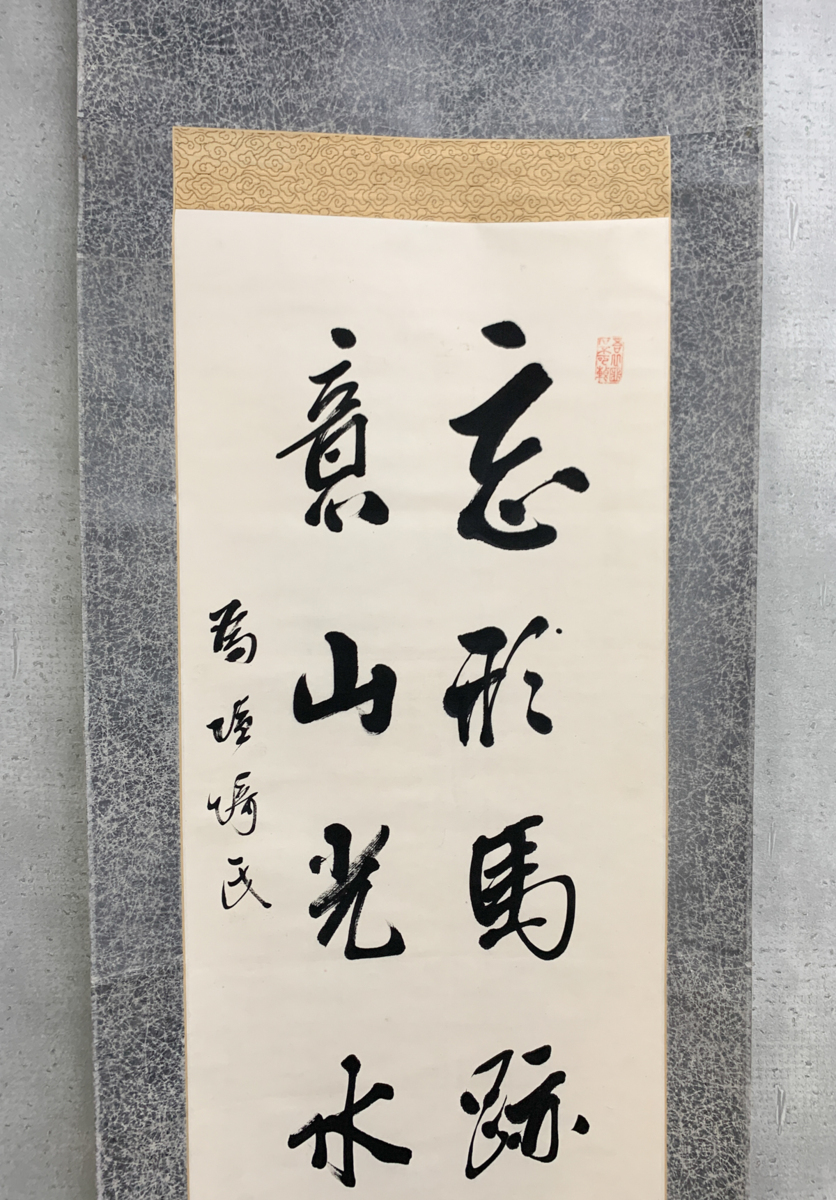 忘形馬跡
意山光水
為崎氏